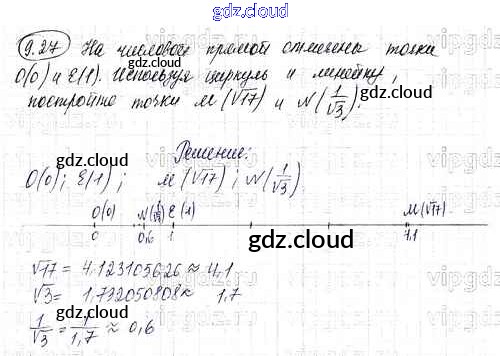 gdz.cloud
9.27 На числовой прямой отмечены точки
O(0) и E(1). Используя циркуль и линейку,
постройте точки M(√17) и N(1/√3).
gdz.cloud
gdz.cloud
gdz.cloud
Решение:
O(0); E(1); M(√17); N(1/√3)
gdz.cloud
O(0) N(1/√3) E(1) M(√17)
0 0,6 1 4,1
gdz.cloud
√17 = 4,123105626 ≈ 4,1
√3 = 1,732050808 ≈ 1,7
1/√3 = 1/1,7 ≈ 0,6
gdz.cloud
gdz.cloud